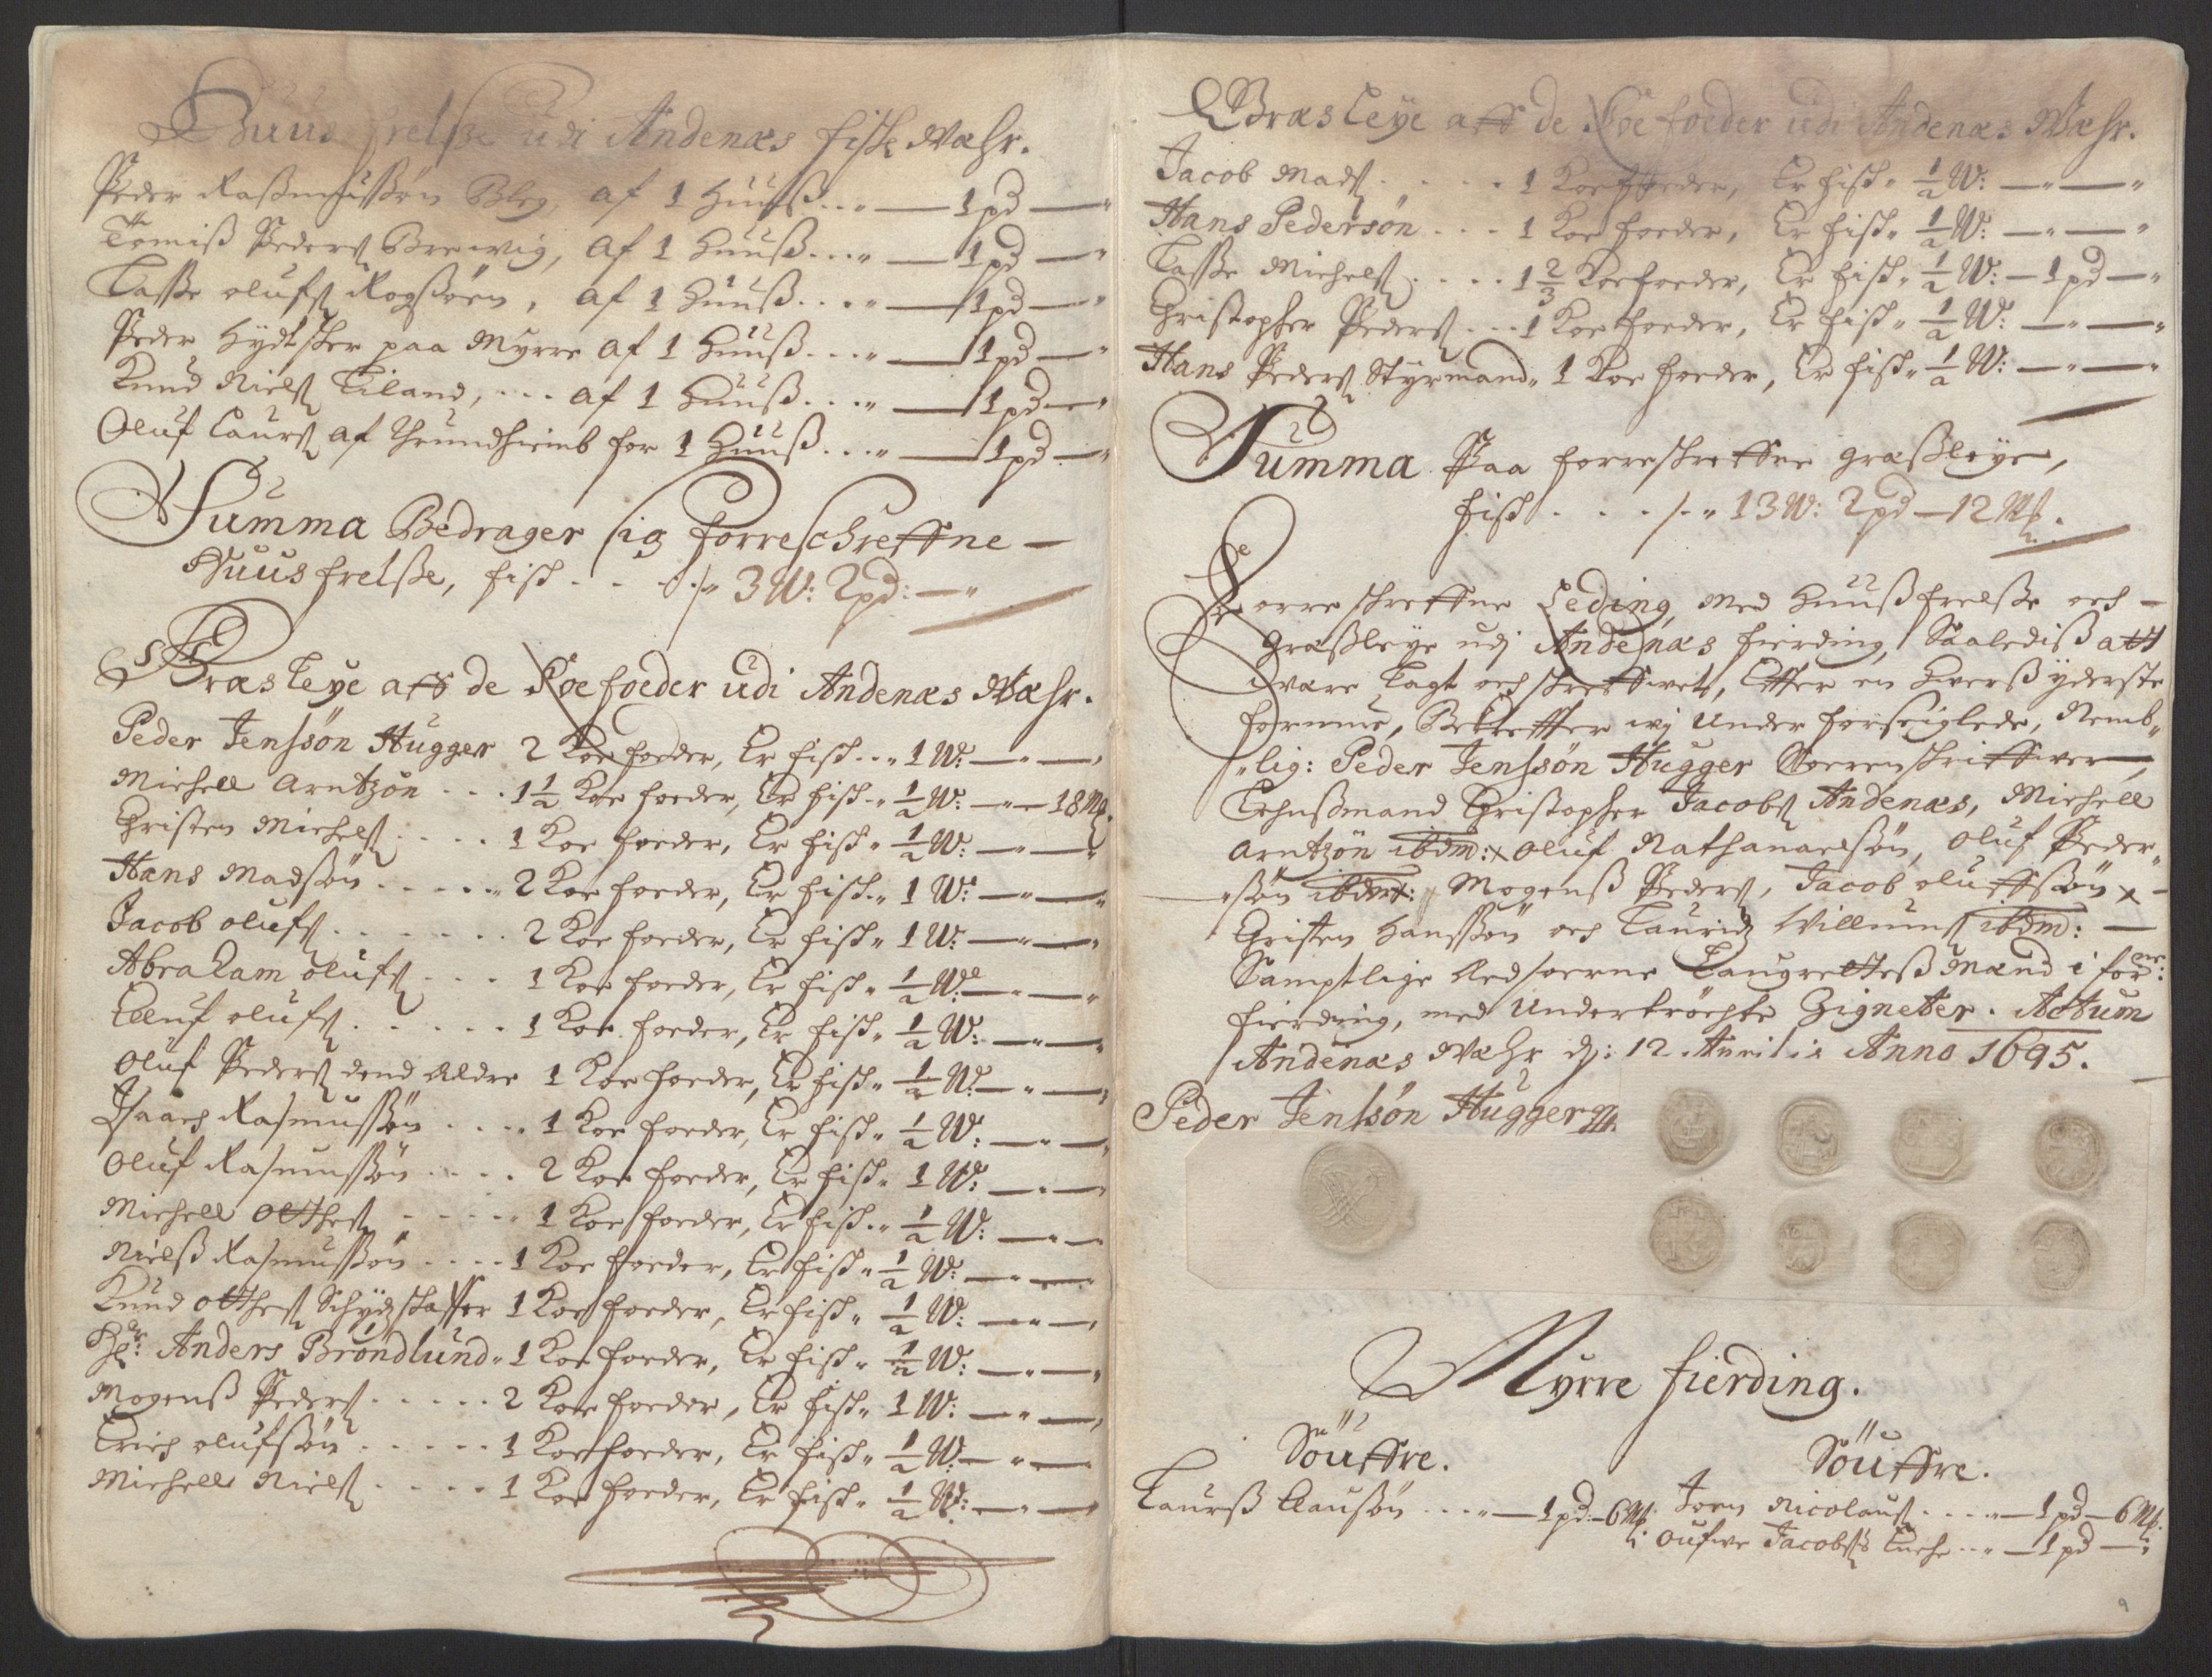 Huus frelsse udi Andenæs fiske Wæhr.
Peder Rassmussøn Bley, af 1 Huuss... " — 1 pd — "
Tomiss Peders Brewig, af 1 Huuss... " — 1 pd — "
Lasse olufs Rogssøen, af 1 Huuss... " — 1 pd — "
Peder Hydtsker paa Myrre af 1 Huuss... " — 1 pd — "
Knud Niels Eiland, ... af 1 Huuss... " — 1 pd — "
Oluf Laurs af Thrundhiemb for 1 Huuss... " — 1 pd — "
Summa Bedrager sig forreschreffne —
Huus frelsse, fisk . . . ./. " 3 W: 2 pd: — "
Græs Leye aff de Koe foeder udi Andenæs Wæhr.
Peder Jenssøn Hugger 2 Koe foeder, Er fisk... 1 W: — " — "
Michell Arntzøn . . . 1 1/2 Koe foeder, Er fisk " 1/2 W: — " — 18 mk.
Christen Michels . . . . 1 Koe foeder, Er fisk " 1/2 W: — " — "
Hans Madssøn . . . . . " 2 Koe foeder, Er fisk " 1 W: — " — "
Jacob olufs . . . . . . . 2 Koe foeder, Er fisk " 1 W: — " — "
Abraham olufs . . . 1 Koe foeder, Er fisk " 1/2 W: — " — "
Elluf olufs . . . . . . 1 Koe foeder, Er fisk " 1/2 W: — " — "
Oluf Peders dend Aldre 1 Koe foeder, Er fisk " 1/2 W: — " — "
Isaach Rasmussøn . . . . 1 Koe foeder, Er fisk " 1/2 W: — " — "
Oluf Rasmussøn . . . . 2 Koe foeder, Er fisk " 1 W: — " — "
Michell Otthes . . . . . " 1 Koe foeder, Er fisk " 1/2 W: — " —
Nielss Rasmussøn . . . . 1 Koe foeder, Er fisk " 1/2 W: — " — "
Knud otthes Schydskaffer 1 Koe foeder, Er fisk " 1/2 W: — " — "
Hr: Anders Brøndlund " 1 Koe foeder, Er fisk " 1/2 W: — " — "
Mogenss Peders . . . . . 2 Koe foeder, Er fisk " 1 W: — " — "
Erich olufssøn . . . . . 1 Koe foeder, Er fisk " 1/2 W: — " — "
Michell Niels . . . . 1 Koe foeder, Er fisk " 1/2 W: — " — "
Græs Leye aff de Koe foeder udi Andenæs Wæhr.
Jacob Mads . . . . . 1 Koe foeder, Er fisk " 1/2 W: — " — "
Hans Pedersøn . . . 1 Koe foeder, Er fisk " 1/2 W: — " — "
Lasse Michels . . . . 1 2/3 Koe foeder, Er fisk " 1/2 W: — 1 pd — "
Christopher Peders . . . 1 Koe foeder, Er fisk " 1/2 W: — " — "
Hans Peders Styrmand " 1 Koe foeder, Er fisk " 1/2 W: — " — "
Summa Paa forreskreffne græssleye,
fisk . . . ./. " 13 W: 2 pd — 12 mk.
Forreskreffne Leding med Huussfrelsse och —
græssleye udj Andenæs fierding, Saalediss att
være Lagt och skreffwet, Efter en Hverss yderste
formue, Bekreffter wj under forseiglede, Nemb-
lig: Peder Jenssøn Hugger Soerenskriffwer,
Lehnssmand Christopher Jacobs Andenæs, Michell
Arntzøn ibdm: x Oluf Nathanaelsøn, Oluf Peder-
søn ibdm: Mogenss Peders, Jacob oluffssøn x —
Christen Hanssøn och Lauridz Willums ibdm: —
Samptlige Edsoerne Laugrettess Mænd i forne:
fierding, med undertrøchte Zigneter. Actum
Andenæs Wæhr dj: 12 Aprilis Anno 1695.
Peder Jenssøn Hugger
Myrre fierding.
Søuffre. Søuffre.
Laurss Claussøn . . . . " — 1 pd: — 6 mk. Joen Nicolaus . . . . " — 1 pd — 6 mk.
oufwe Jacobss Enche . . " — 1 pd — "
9